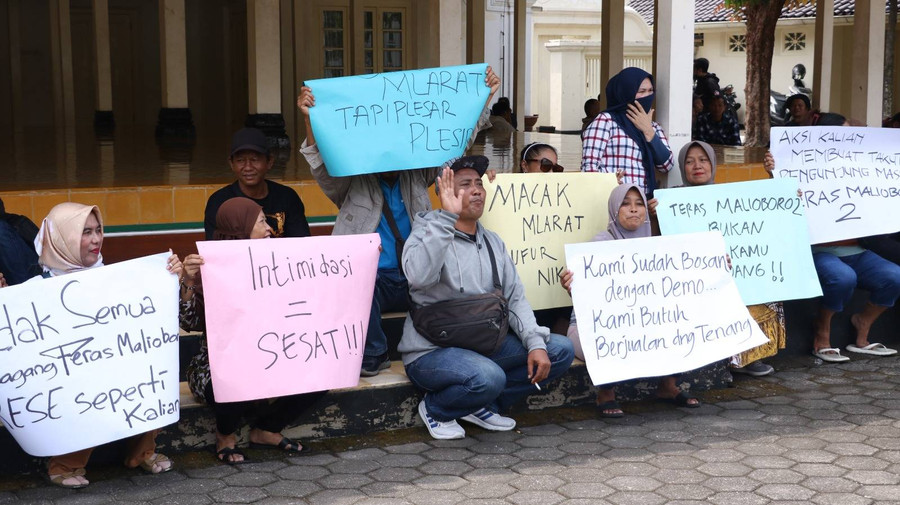 MLARAT
TAPI PLESAR
PLESIR
MACAK
MLARAT
NIK
AKSI KALIAN
MEMBUAT TAKUT
PENGUNJUNG MAS
TERAS MALIOBORO
2
TERAS MALIOBORO 2
BUKAN
KAMU
!!
dak Semua
agang Teras Maliobor
RESE seperti
Kalian
Intimidasi
=
SESAT!!
Kami Sudah Bosan
dengan Demo...
Kami Butuh
Berjualan dng Tenang